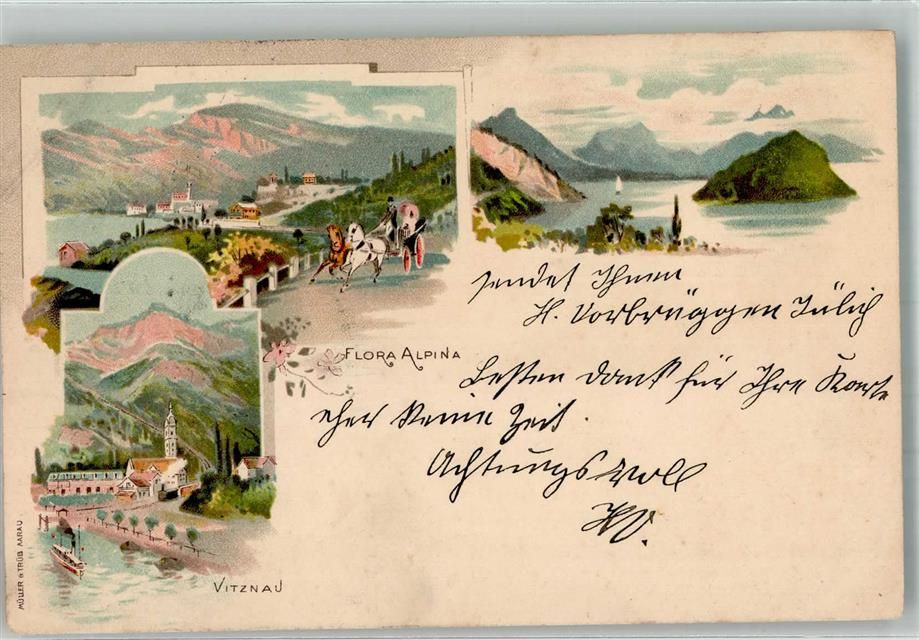 sendet Ihnen
H. Vorbrüggen Jülich
FLORA ALPINA
Besten Dank für Ihre Karte
eher keine Zeit.
Achtungsvoll
HV.
VITZNAU
MÜLLER & TRÜB AARAU